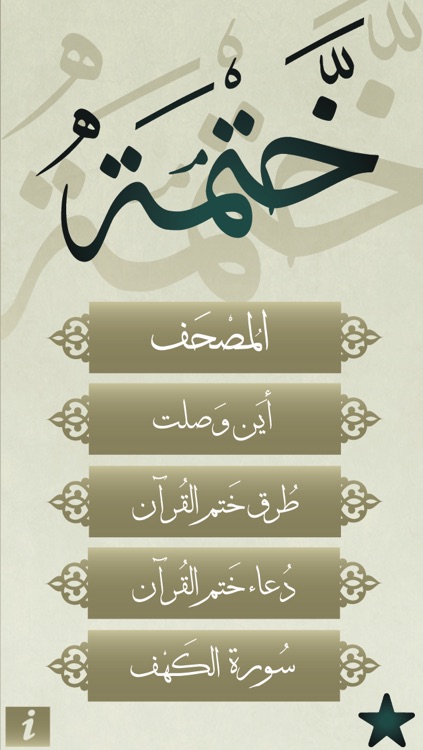 خَّتْمَةُ
المُصْحَف
أَين وَصلت
طُرق ختَم القُرآن
دُعاء ختَم القُرآن
سُورة الكَهف
i